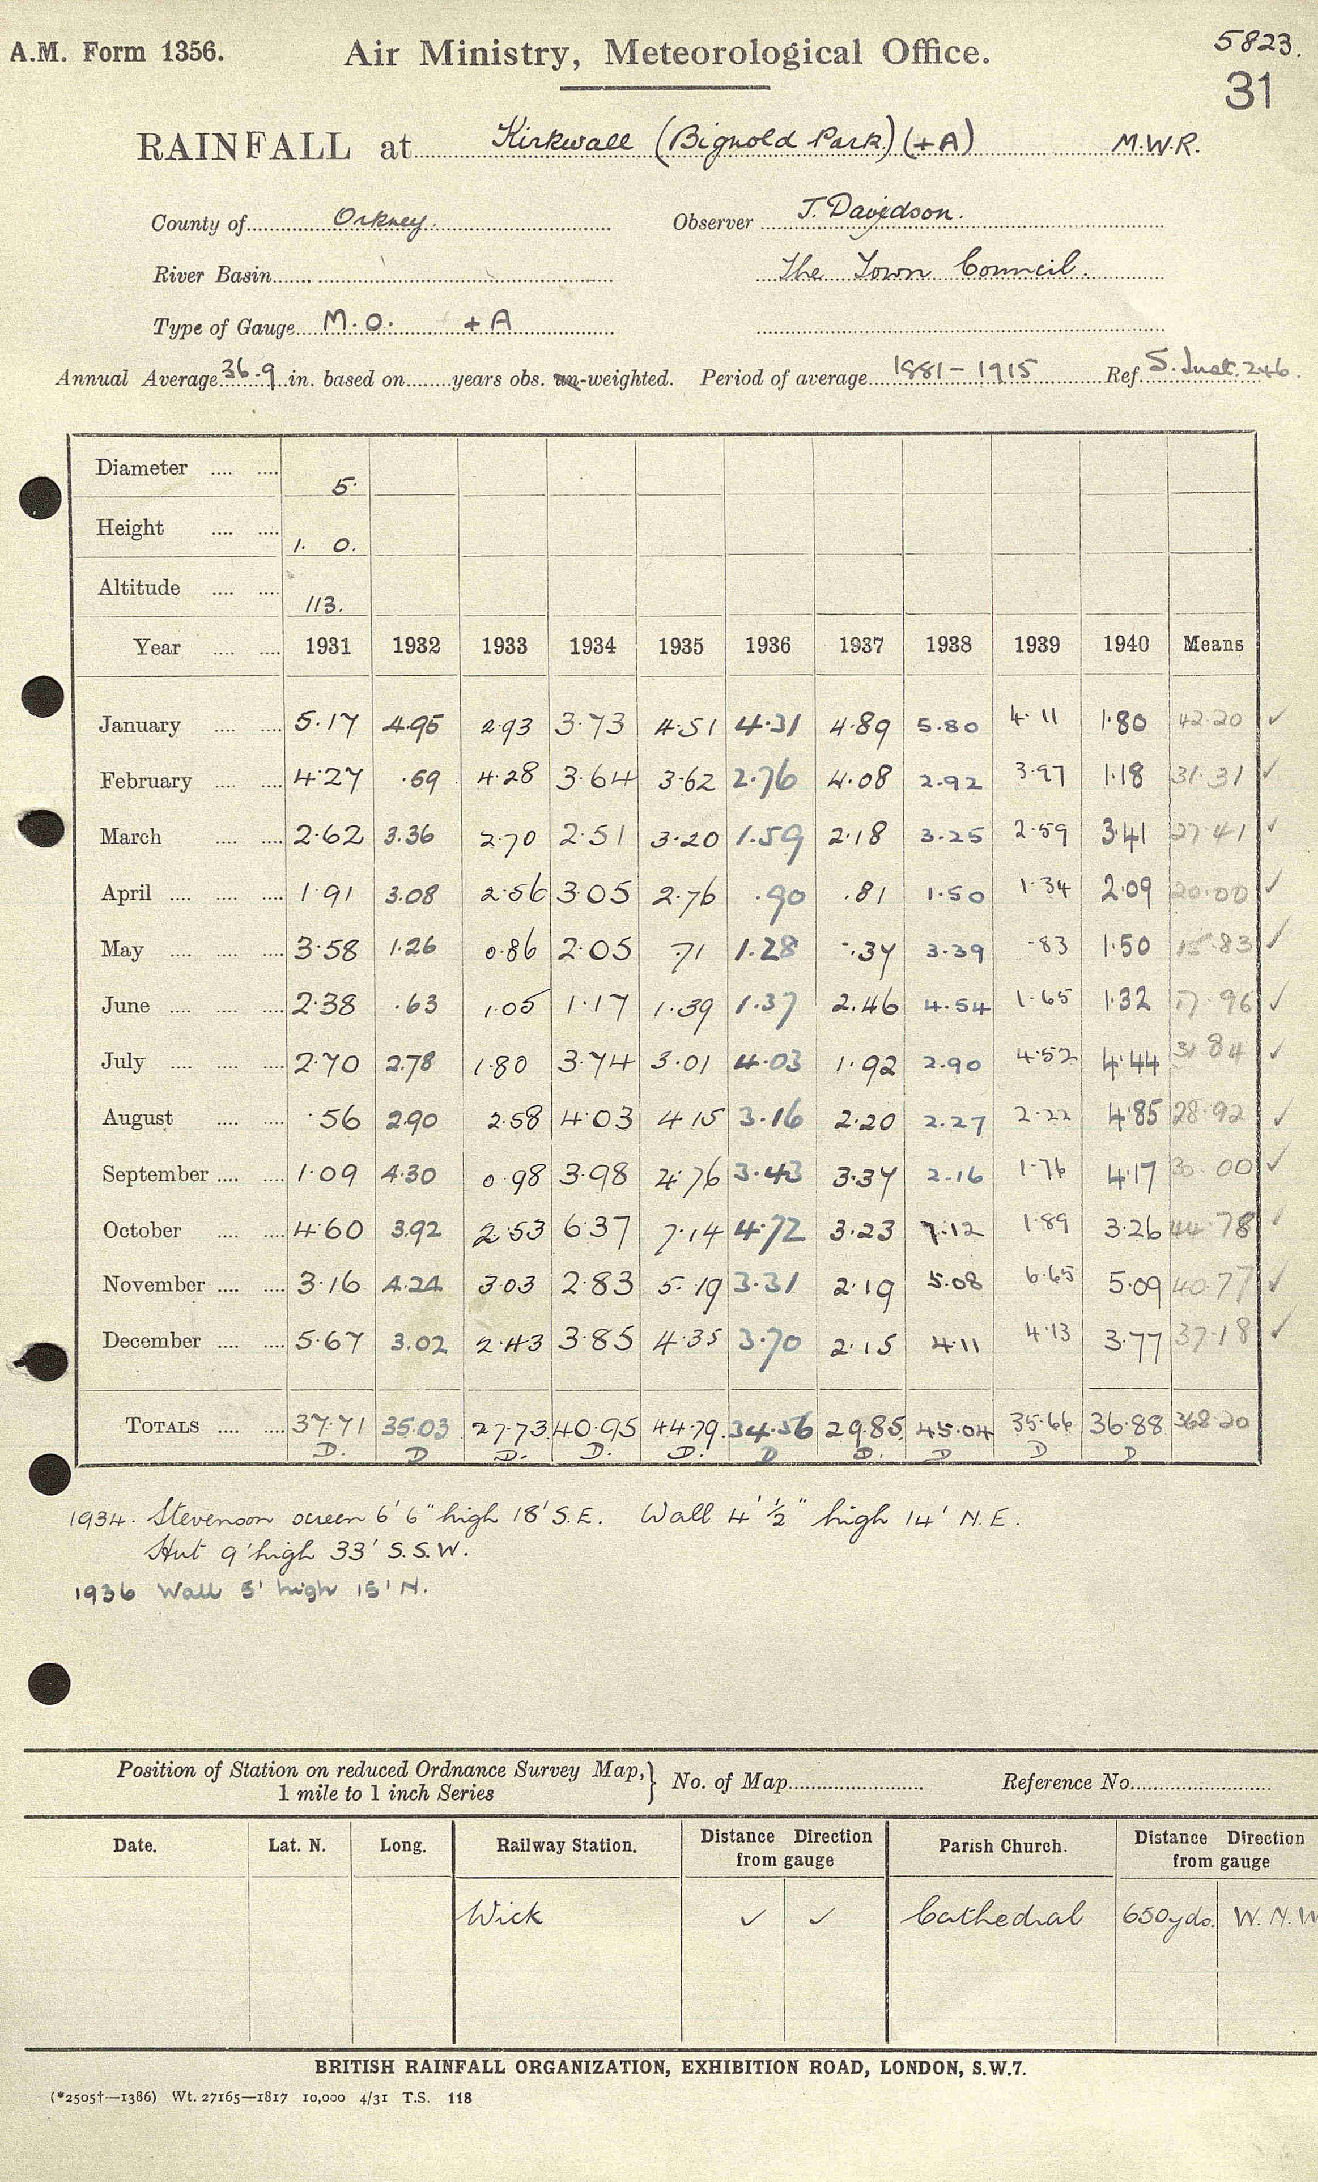 A.M. Form 1356. Air Ministry, Meteorological Office. 5823.
31
RAINFALL at Kirkwall (Bignold Park) (+A) M.W.R.
County of Orkney. Observer J. Davidson.
River Basin The Town Council.
Type of Gauge M.O. +A
Annual Average 36.9 in. based on years obs. un-weighted. Period of average 1881-1915 Ref S. Inst. 246.
Diameter 5.
Height 1. 0.
Altitude 113.
Year 1931 1932 1933 1934 1935 1936 1937 1938 1939 1940 Means
January 5.17 4.95 2.93 3.73 4.51 4.31 4.89 5.80 4.11 1.80 42.20 ✓
February 4.27 .59 4.28 3.64 3.62 2.76 4.08 2.92 3.97 1.18 31.31 ✓
March 2.62 3.36 2.70 2.51 3.20 1.59 2.18 3.25 2.59 3.41 27.41 ✓
April 1.91 3.08 2.56 3.05 2.76 .90 .81 1.50 1.34 2.09 20.00 ✓
May 3.58 1.26 0.86 2.05 .71 1.28 .37 3.39 .83 1.50 15.83 ✓
June 2.38 .63 1.05 1.17 1.39 1.37 2.46 4.54 1.65 1.32 17.96 ✓
July 2.70 2.78 1.80 3.74 3.01 4.03 1.92 2.90 4.52 4.44 31.84 ✓
August .56 2.90 2.58 4.03 4.15 3.16 2.20 2.27 2.22 4.85 28.92 ✓
September 1.09 4.30 0.98 3.98 4.76 3.43 3.37 2.16 1.76 4.17 30.00 ✓
October 4.60 3.92 2.53 6.37 7.14 4.72 3.23 7.12 1.89 3.26 44.78 ✓
November 3.16 4.24 3.03 2.83 5.19 3.31 2.19 5.08 6.65 5.09 40.77 ✓
December 5.67 3.02 2.43 3.85 4.35 3.70 2.15 4.11 4.13 3.77 37.18 ✓
TOTALS 37.71 35.03 27.73 40.95 44.79. 34.56 29.85. 45.04 35.66 36.88 368.20
D. D D. D. D. D D. D D D
1934. Stevenson screen 6' 6" high 18' S.E. Wall 4' ½" high 14' N.E.
Hut 9' high 33' S.S.W.
1936 Wall 5' high 15' N.
Position of Station on reduced Ordnance Survey Map, } No. of Map Reference No.
1 mile to 1 inch Series
Date. Lat. N. Long. Railway Station. Distance Direction from gauge Parish Church. Distance Direction from gauge
Wick ✓ ✓ Cathedral 650 yds. W.N.W
BRITISH RAINFALL ORGANIZATION, EXHIBITION ROAD, LONDON, S.W.7.
(*2505†—1386) Wt. 27165—1817 10,000 4/31 T.S. 118